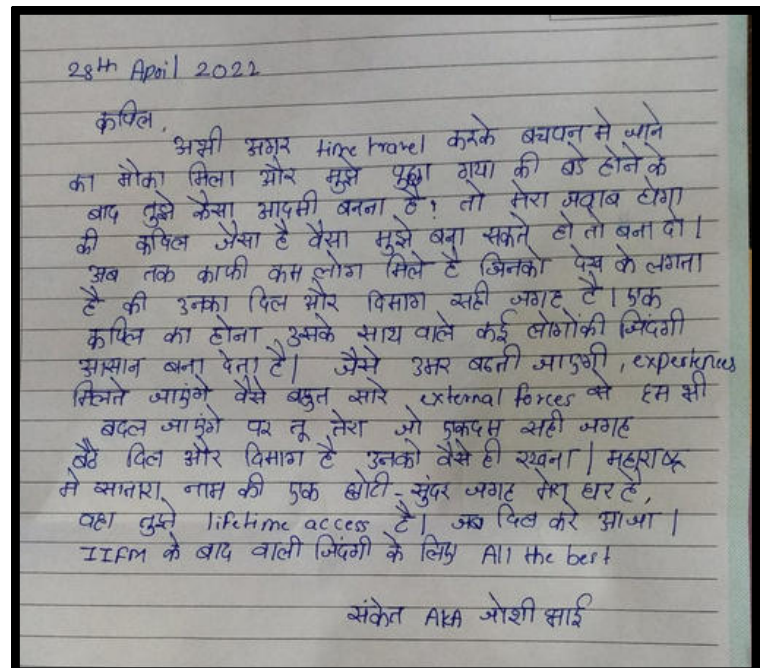 28th April 2022
कपिल,
अभी अगर time travel करके बचपन मे जाने
का मौका मिला और मुझे पुछा गया की बडे होने के
बाद तुझे कैसा आदमी बनना है? तो मेरा जवाब होगा
की कपिल जैसा है वैसा मुझे बना सकते हो तो बना दो।
अब तक काफी कम लोग मिले है जिनको देख के लगता
है की उनका दिल और दिमाग सही जगह है। एक
कपिल का होना उसके साथ वाले कई लोगोंकी जिंदगी
आसान बना देता है। जैसे उमर बढती जाएगी, experiences
मिलते जाएंगे वैसे बहुत सारे external forces से हम भी
बदल जाएंगे पर तू तेरा जो एकदम सही जगह
बैठे दिल और दिमाग है उनको वैसे ही रखना। महाराष्ट्र
मे सातारा नाम की एक छोटी-सुंदर जगह मेरा घर है,
वहा तुझे lifetime access है। जब दिल करे आजा।
IIFM के बाद वाली जिंदगी के लिए All the best
संकेत AKA जोशी भाई